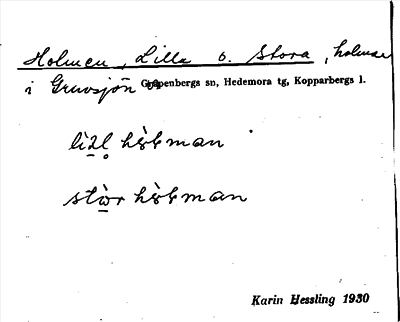 Holmen, Lilla o. Stora, holmar
i Gruvsjön Garpenbergs sn, Hedemora tg, Kopparbergs l.
lill hòlman
stor hòlman
Karin Hessling 1930